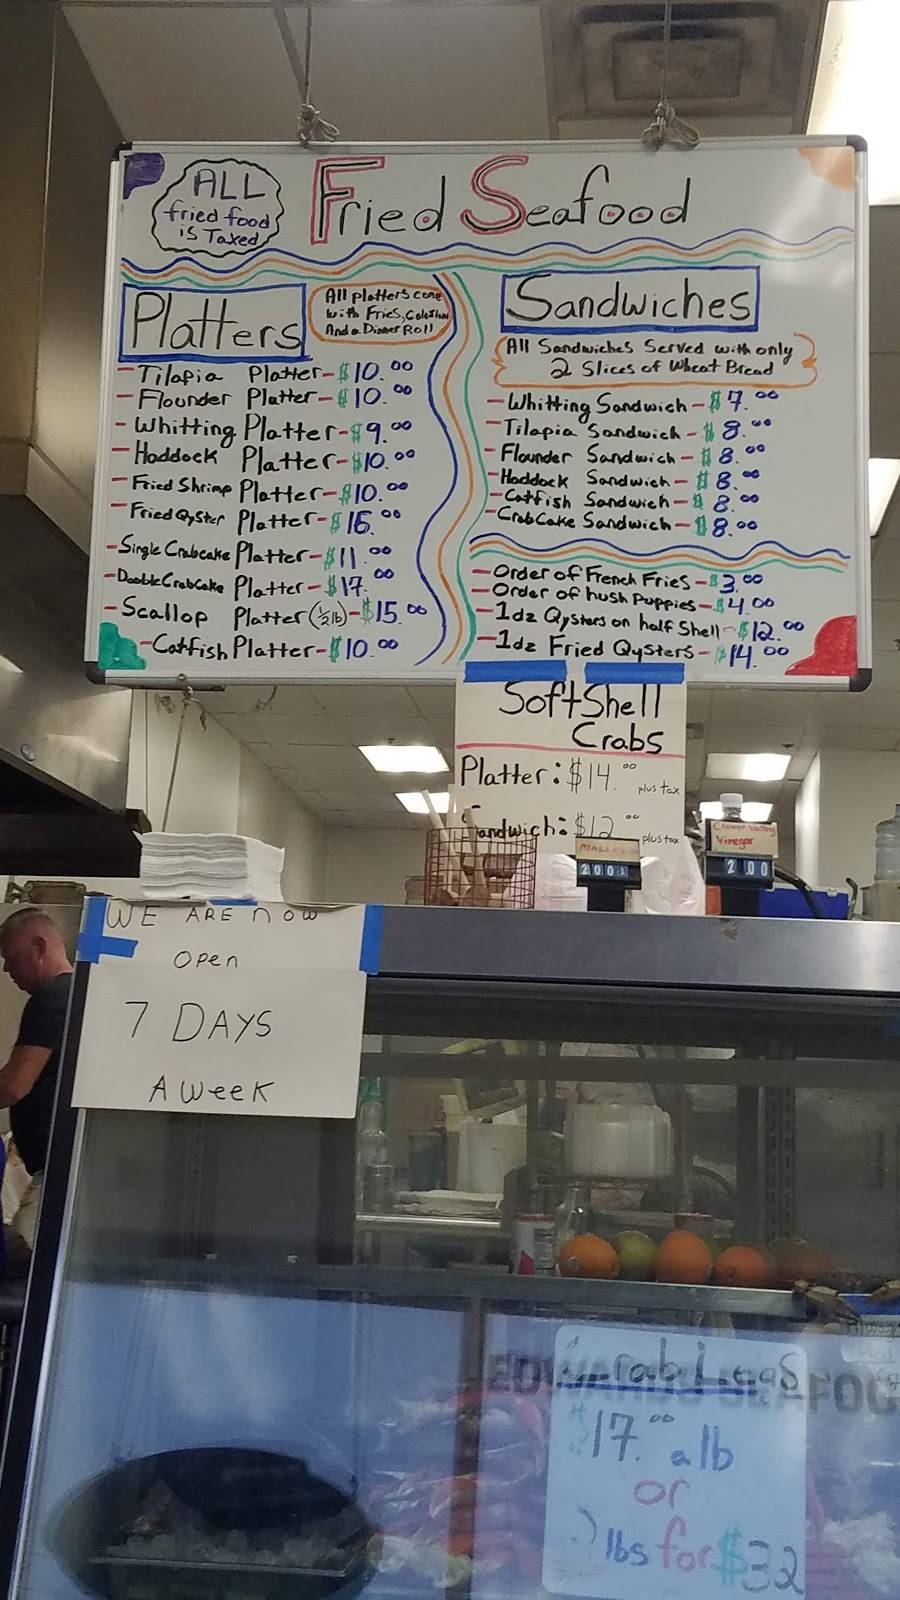 ALL
fried food
is Taxed
Fried Seafood
Platters
All platters come
with Fries, Coleslaw
And a Dinner Roll
- Tilapia Platter - $10.00
- Flounder Platter - $10.00
- Whitting Platter - $9.00
- Haddock Platter - $10.00
- Fried Shrimp Platter - $10.00
- Fried Oyster Platter - $16.00
- Single Crabcake Platter - $11.00
- Double Crabcake Platter - $17.00
- Scallop Platter (1/2 lb) - $15.00
- Catfish Platter - $10.00
Sandwiches
All Sandwiches Served with only
2 Slices of Wheat Bread
- Whitting Sandwich - $7.00
- Tilapia Sandwich - $8.00
- Flounder Sandwich - $8.00
- Haddock Sandwich - $8.00
- Catfish Sandwich - $8.00
- Crabcake Sandwich - $8.00
- Order of French Fries - $3.00
- Order of hush Puppies - $4.00
- 1dz Oysters on half Shell - $12.00
- 1dz Fried Oysters - $14.00
Soft Shell
Crabs
Platter: $14.00 plus tax
Sandwich: $12.00 plus tax
Vinegar
2.00
WE ARE NOW
OPEN
7 DAYS
A WEEK
$17.00 a lb
or
lbs for $32